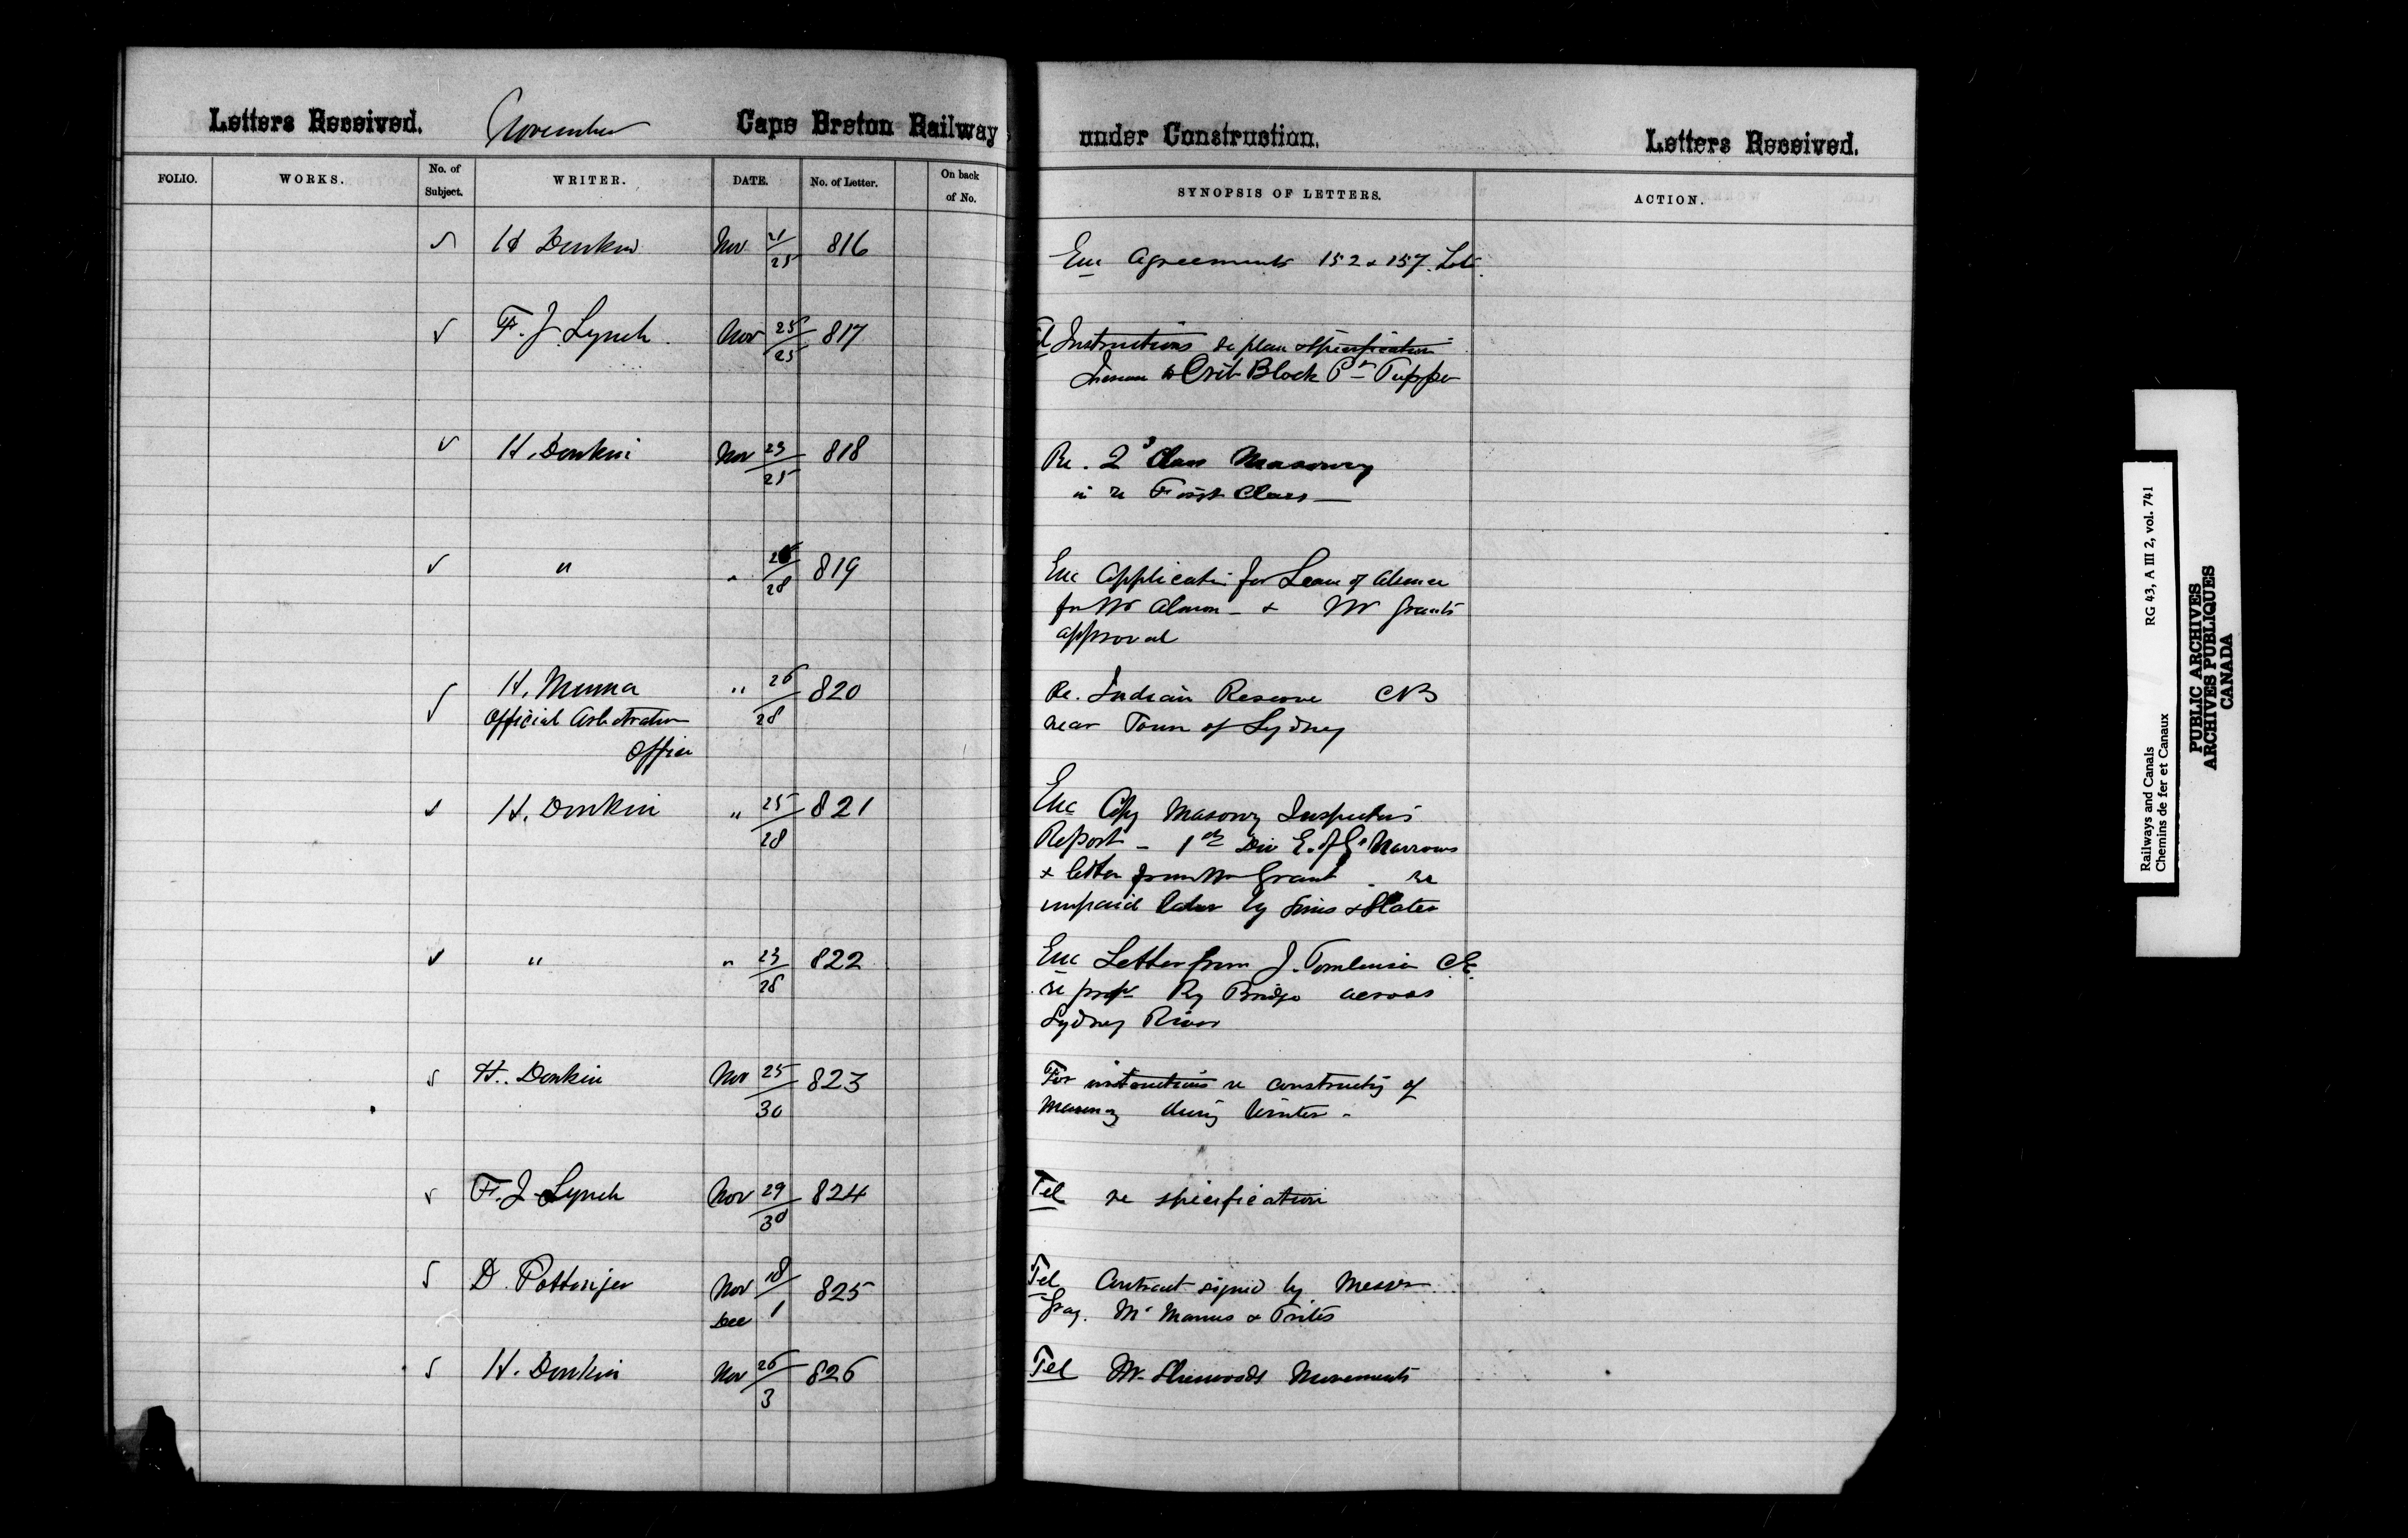 Letters Received. November Cape Breton Railway under Construction. Letters Received.
FOLIO. WORKS. No. of Subject. WRITER. DATE. No. of Letter. On back of No. SYNOPSIS OF LETTERS. ACTION.
H Donkin Nov 21/25 816 Enc Agreements 152 & 157
F. J Lynch Nov 25/25 817 Instructions re plan & specification
Crib Block Pt Tupper
H. Donkin Nov 23/25 818 Re. 2d Class Masonry
in re First Class
" " 28 819 Enc Application for Leave of absence
for Mr Almon - & Mr Grants
approval
H. " 26/28 820 Re. Indian Reserve CB
Official Arbitrator near Town of Sydney
Office
H. Donkin " 25/28 821 Enc Copy Masonry Inspectors
Report - 1st Div E. of G. Narrows
& letter from Mr Grant re
unpaid labor by Sims & Slater
" " 23/28 822 Enc Letter from J. Tomlinson CE.
re propd Ry Bridge across
Sydney River
H. Donkin Nov 25/30 823 For instructions re constructg of
Masonry during Winter -
F. J Lynch Nov 29/30 824 Tel re specification
D. Pottinger Nov 18/Dec 1 825 Tel Contract signed by Messrs
Gray. McManus & Trites
H. Donkin Nov 26/3 826 Tel Mr Sherwoods Movements
Railways and Canals RG 43, A III 2, vol. 741
Chemins de fer et Canaux
PUBLIC ARCHIVES
ARCHIVES PUBLIQUES
CANADA